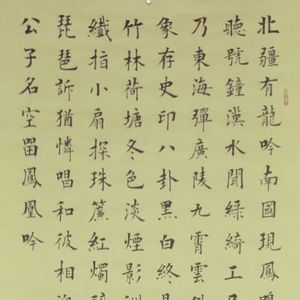 北疆有龍吟南國現鳳
聽號鐘漢水聞綠綺工
乃東海彈廣陵九霄雲
象存史印八卦黑白終
竹林荷塘冬色淡煙影
纖指小扇探珠簾紅燭
琵琶訴猶憐唱和彼相
公子名空留鳳凰吟